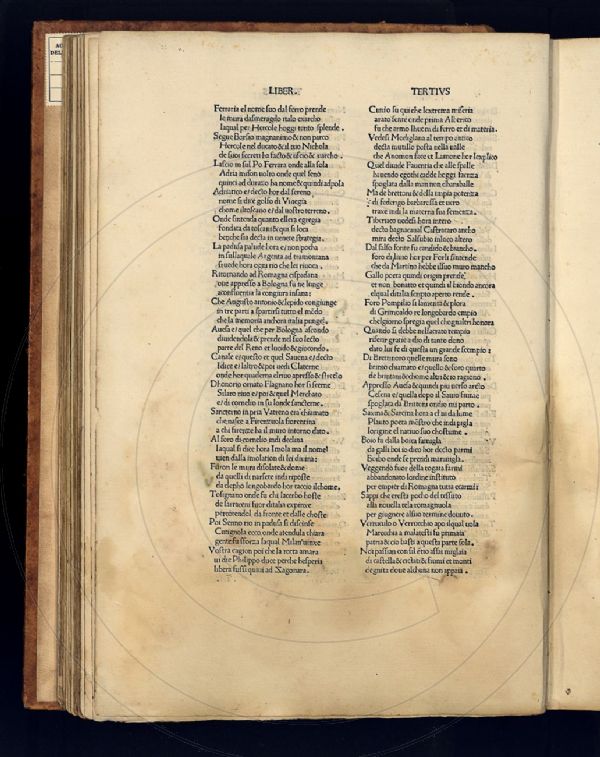 LIBER.
Ferraria el nome suo dal ferro prende
le mura da smeragdo italo exarcho
laqual per Hercole hoggi tanto splende.
Segue Borsio magnanimo & non parco
Hercole nel ducato & il zio Nichola
de suoi secreti ha facto & uscio & uarcho.
Lascio in sul Po Ferrara onde alla sola
Adria insion uolto onde quel seno
quinci ad durato ha nome & quindi adpola
Adriatico e/ decto hor dal sereno
nome si dixe golfo di Vinegia
chome il toscano e/ dal uostro terreno.
Onde sintenda quanto ellera egregia
fondata da toscani & qui si loca
benche sia decta in uenere strategia.
La padusa palude hora e/ non pocha
in sullaquale Argenta ad tramontana
si uede hora ogni rio che lei rinoca.
Ritornando ad Romagna cispadana
oue appresso a Bologna fu ne lunge
a confluentia la congiura insana:
Che Augusto antonio & lepido congiunge
in tre parti a spartirsi tutto el modo
che la memoria anchora italia punge.
Auesa e/ quel che per Bologna ascondo
diuidendola & prende nel suo lecto
parte del Reno et lucido & giocondo.
Canale e/ questo et quel Sauena e/ decto
Idice e/ laltro & poi uedi Claterne
onde hor quaderna el rio appresso & strecto
Dhonorio ornato Flagnano hor si scerne
Silaro rino e/ poi & quel Merchato
e/ di cornelio in su londe sancterne.
Sancterno in pria Vatreno era chiamato
che nasce a Firentiuola fiorentina
a chi firente ha il muro intorno dato.
Al foro di cornelio indi declina
laqual si dice hora Imola ma il nome
uien dalla imolation di lei diuina:
Furon le mura disolate & dome
da quelli di narsete indi riposte
da clepho lengobardo hor taccio il chome.
Tosignano onde fu chi lacerbo hoste
de saracenifuor ditalia expinxe
percotendol da fronte et dalle choste
Poi Senno rio in padusa si discinse
Cutignola ecco onde atendula chiara
gente fu sforza laqual Milan uinxe
Vostra cagion poi che la rotta amara
ui die Philippo duce perche hesperia
libera fussi quiui ad Zagonara.
TERTIVS
Cunio su quiehe lextrema miseria
arato sente onde prima Alberico
fu che armo lhuom di ferro et di materia.
Vedesi Modiglana al tempo antico
decta mutillo posta nella ualle
che Anomon fare et Lamone hor lexplico
Quel diuide Fauentia che alle spalle
hauendo egothi cadde heggi faenza
spoglata dalla man chumballe
Ma de brettoni & della impia potenza
di federigo barbarossa et uero
traxe indi la materna sua semenza.
Tiberiaco uedesi hora intero
decto bagnacaual Castrocaro ancho
mira decto Salsubio in loco altero
Dal salso fonte su candido & biancho.
foro da liuio hor per Forli sintende
che da Martino hebbe il suo muro mancho
Gallo poeta quindi origin prende
et non bonatto et quindi al biondo ancora
elqual ditalia scripto aperto rende.
Foro Pompilio si lamenta & plora
di Grimoaldo re longobardo empio
chel giorno spregia quel che gnaltri honora
Quando si debbe nel sacrato tempio
riferir gratie a dio di tanto dono
dato lui fe di questa un grande scempio:
Di Bretinoro quelle mura sono
britto chiamato e/ quello & foro quarto
de brittani & chome altri & io ragiono.
Appresso Auesa & quindi piu uerso arcto
Cesena e/ quella dopo il Sauio fiume
spoglata da Brittoni en sur mi parto.
Saxina & Sarsina hora a chi da lume
Plauto poeta mostro che indi pigla
lorigine el natiuo suo chostume.
Boio fu dalla boica famigla
da galli boi io dico hor decto parmi
Bobio onde se prendi marauigla.
Veggendo fuor della togata farmi
abbandonato lordine instituto
per empier di Romagna tutta ecarmi
Sappi che cresta pocho del tessuto
alla nouella tela romagnuola
per giugnere al suo termine douuto.
Verruculo o Verrocchio apo diqual uola
Marecchia a malatesti fu primaia
patria & cio basti a questa parte sola.
Noi passian con sil erto assai miglaia
di castella & cichati & fiumi et monti
degnita doue alchuna non appaia.